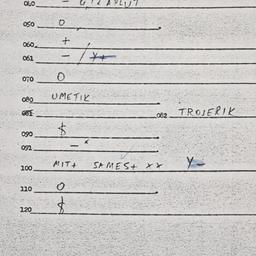 050 0
060 +
061 -
070 0
080 UMETIK
081 082 TROJERIK
090 $
091 -
100 MIT+ SAMES+ XX Y-
110 0
120 $